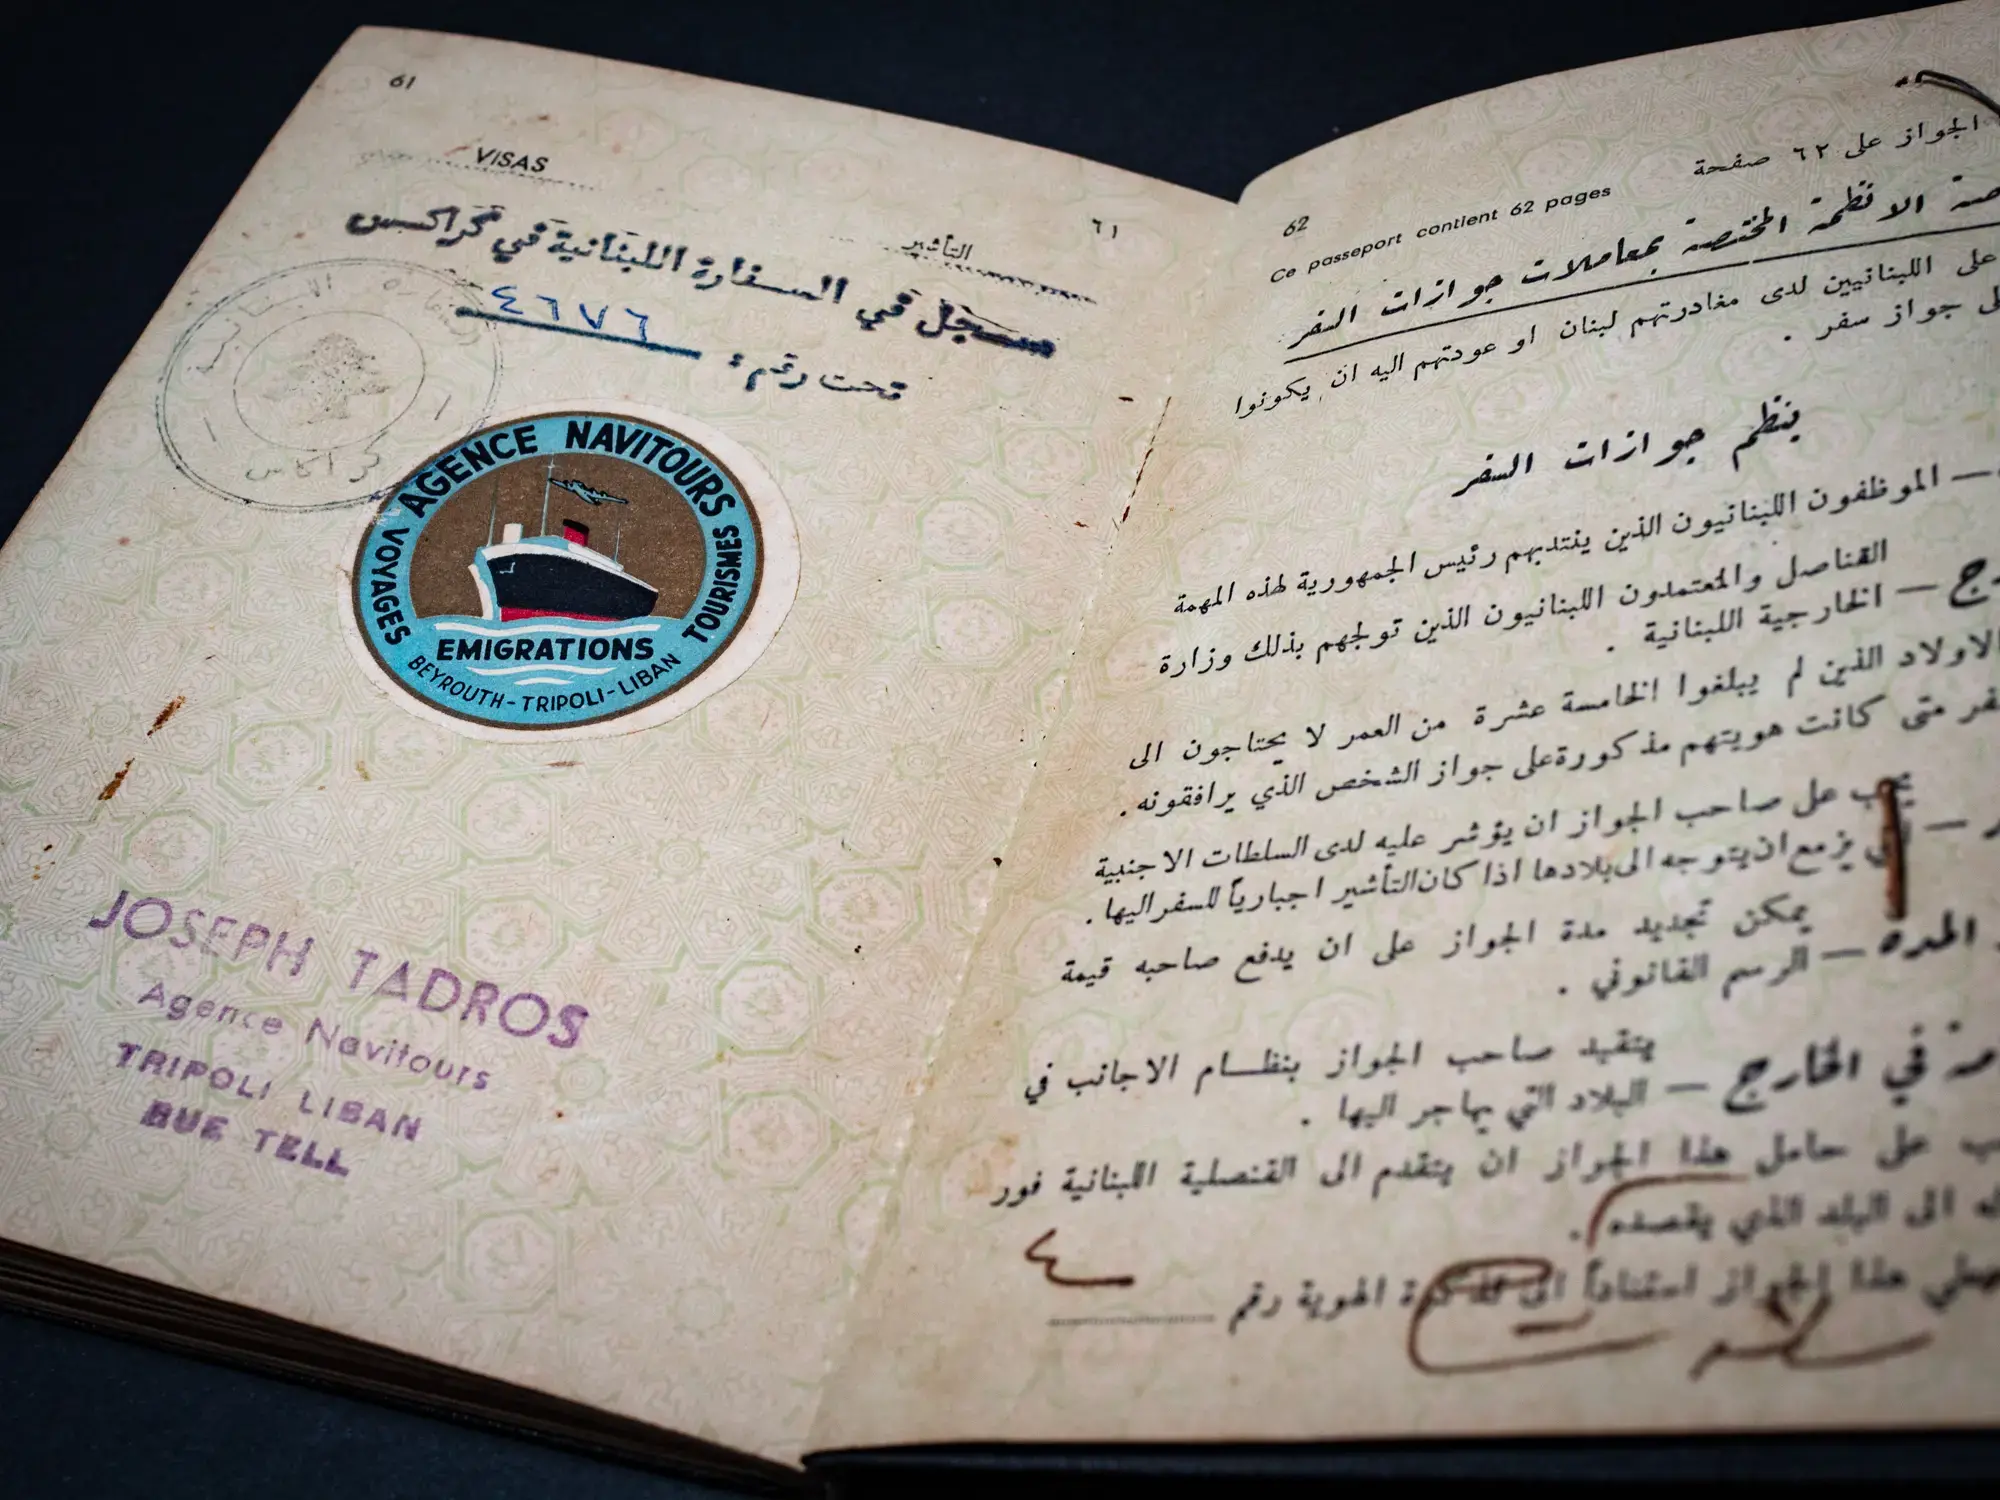 61
VISAS
التأشير
٦١
سجل في السفارة اللبنانية في كراكس
تحت رقم: ٤٦٧٦
السفارة اللبنانية
كراكاس
AGENCE NAVITOURS
VOYAGES
TOURISMES
EMIGRATIONS
BEYROUTH-TRIPOLI-LIBAN
JOSEPH TADROS
Agence Navitours
TRIPOLI LIBAN
RUE TELL
62
Ce passeport contient 62 pages
الجواز على ٦٢ صفحة
الانظمة المختصة بمعاملات جوازات السفر
على اللبنانيين لدى مغادرتهم لبنان او عودتهم اليه ان يكونوا
جواز سفر .
ينظم جوازات السفر
— الموظفون اللبنانيون الذين ينتدبهم رئيس الجمهورية لهذه المهمة
القناصل والمعتمدون اللبنانيون الذين تولجهم بذلك وزارة
— الخارجية اللبنانية .
الاولاد الذين لم يبلغوا الخامسة عشرة من العمر لا يحتاجون الى
متى كانت هويتهم مذكورة على جواز الشخص الذي يرافقونه .
يجب على صاحب الجواز ان يؤشر عليه لدى السلطات الاجنبية
— التي يزمع ان يتوجه الى بلادها اذا كان التأشير اجبارياً للسفر اليها .
يمكن تجديد مدة الجواز على ان يدفع صاحبه قيمة
المدة — الرسم القانوني .
يتقيد صاحب الجواز بنظام الاجانب في
في الخارج — البلاد التي يهاجر اليها .
على حامل هذا الجواز ان يتقدم الى القنصلية اللبنانية فور
الى البلد الذي يقصده .
هذا الجواز استناداً الى تذكرة الهوية رقم
٤